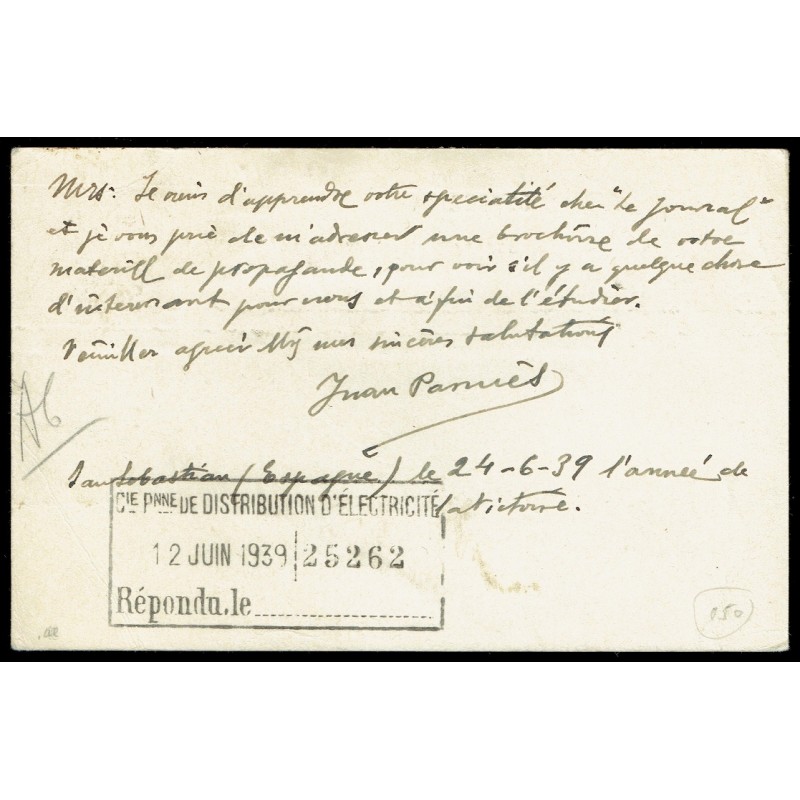 Mrs: Je viens d'apprendre votre specialité chez "Le Journal"
et je vous prie de m'adresser une brochure de votre
materiell de propagande, pour voir s'il y a quelque chose
d'interesant pour nous et afin de l'étudier.
Veuiller agréer Mrs mes sincères salutations
Juan Parniès
San Sebastian (Espagne) le 24-6-39 l'anneé de
la Victoire.
CIE PNNE DE DISTRIBUTION D'ÉLECTRICITÉ
12 JUIN 1939 25262
Répondu, le
050